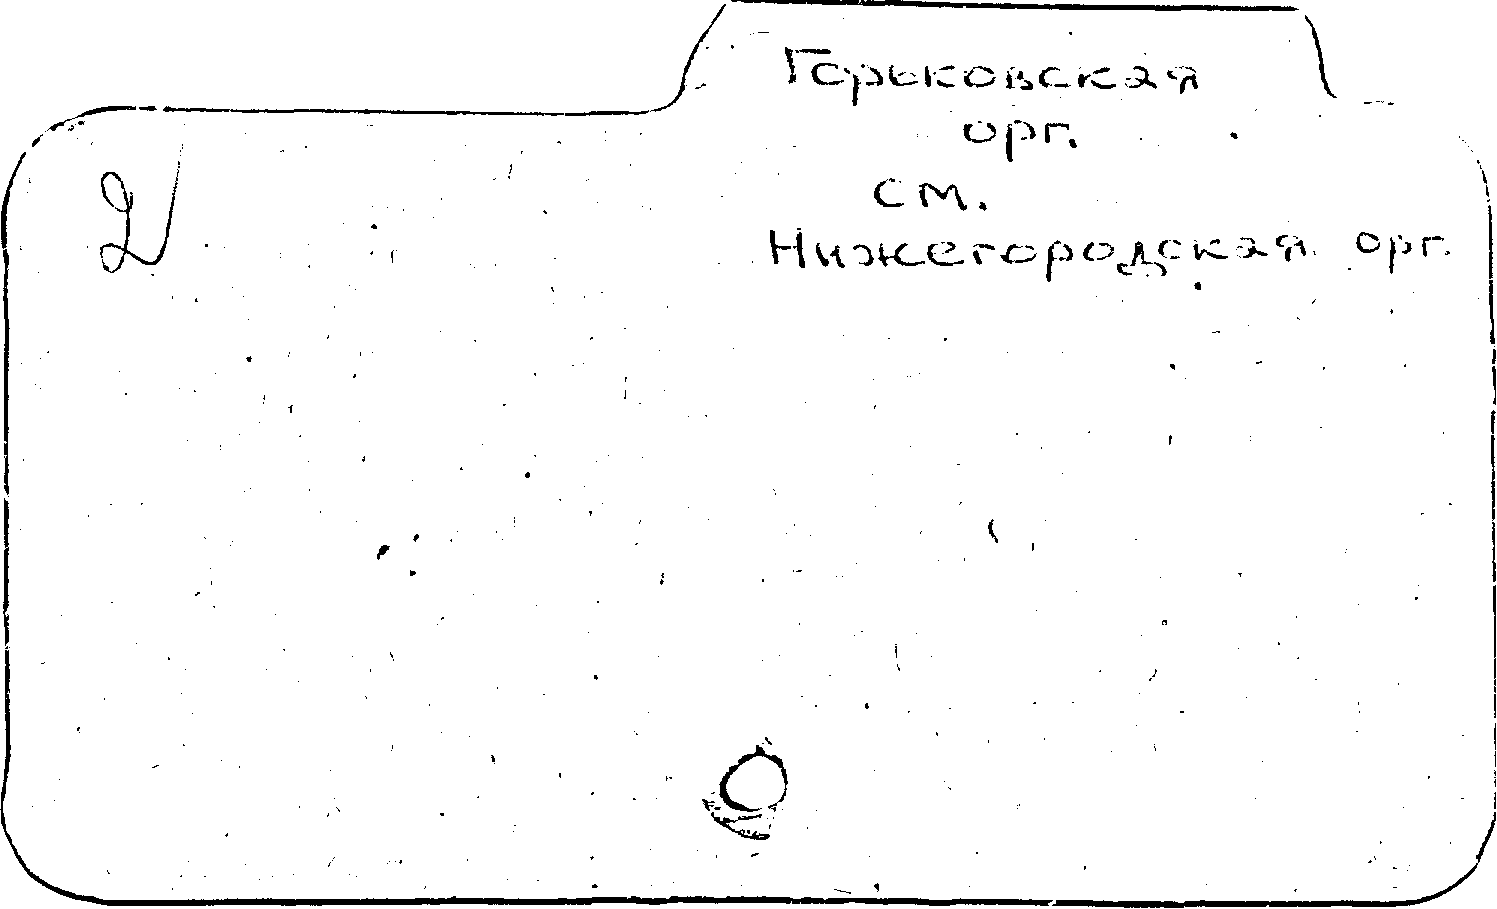 Горьковская
орг.
см.
Нижегородская орг.
2